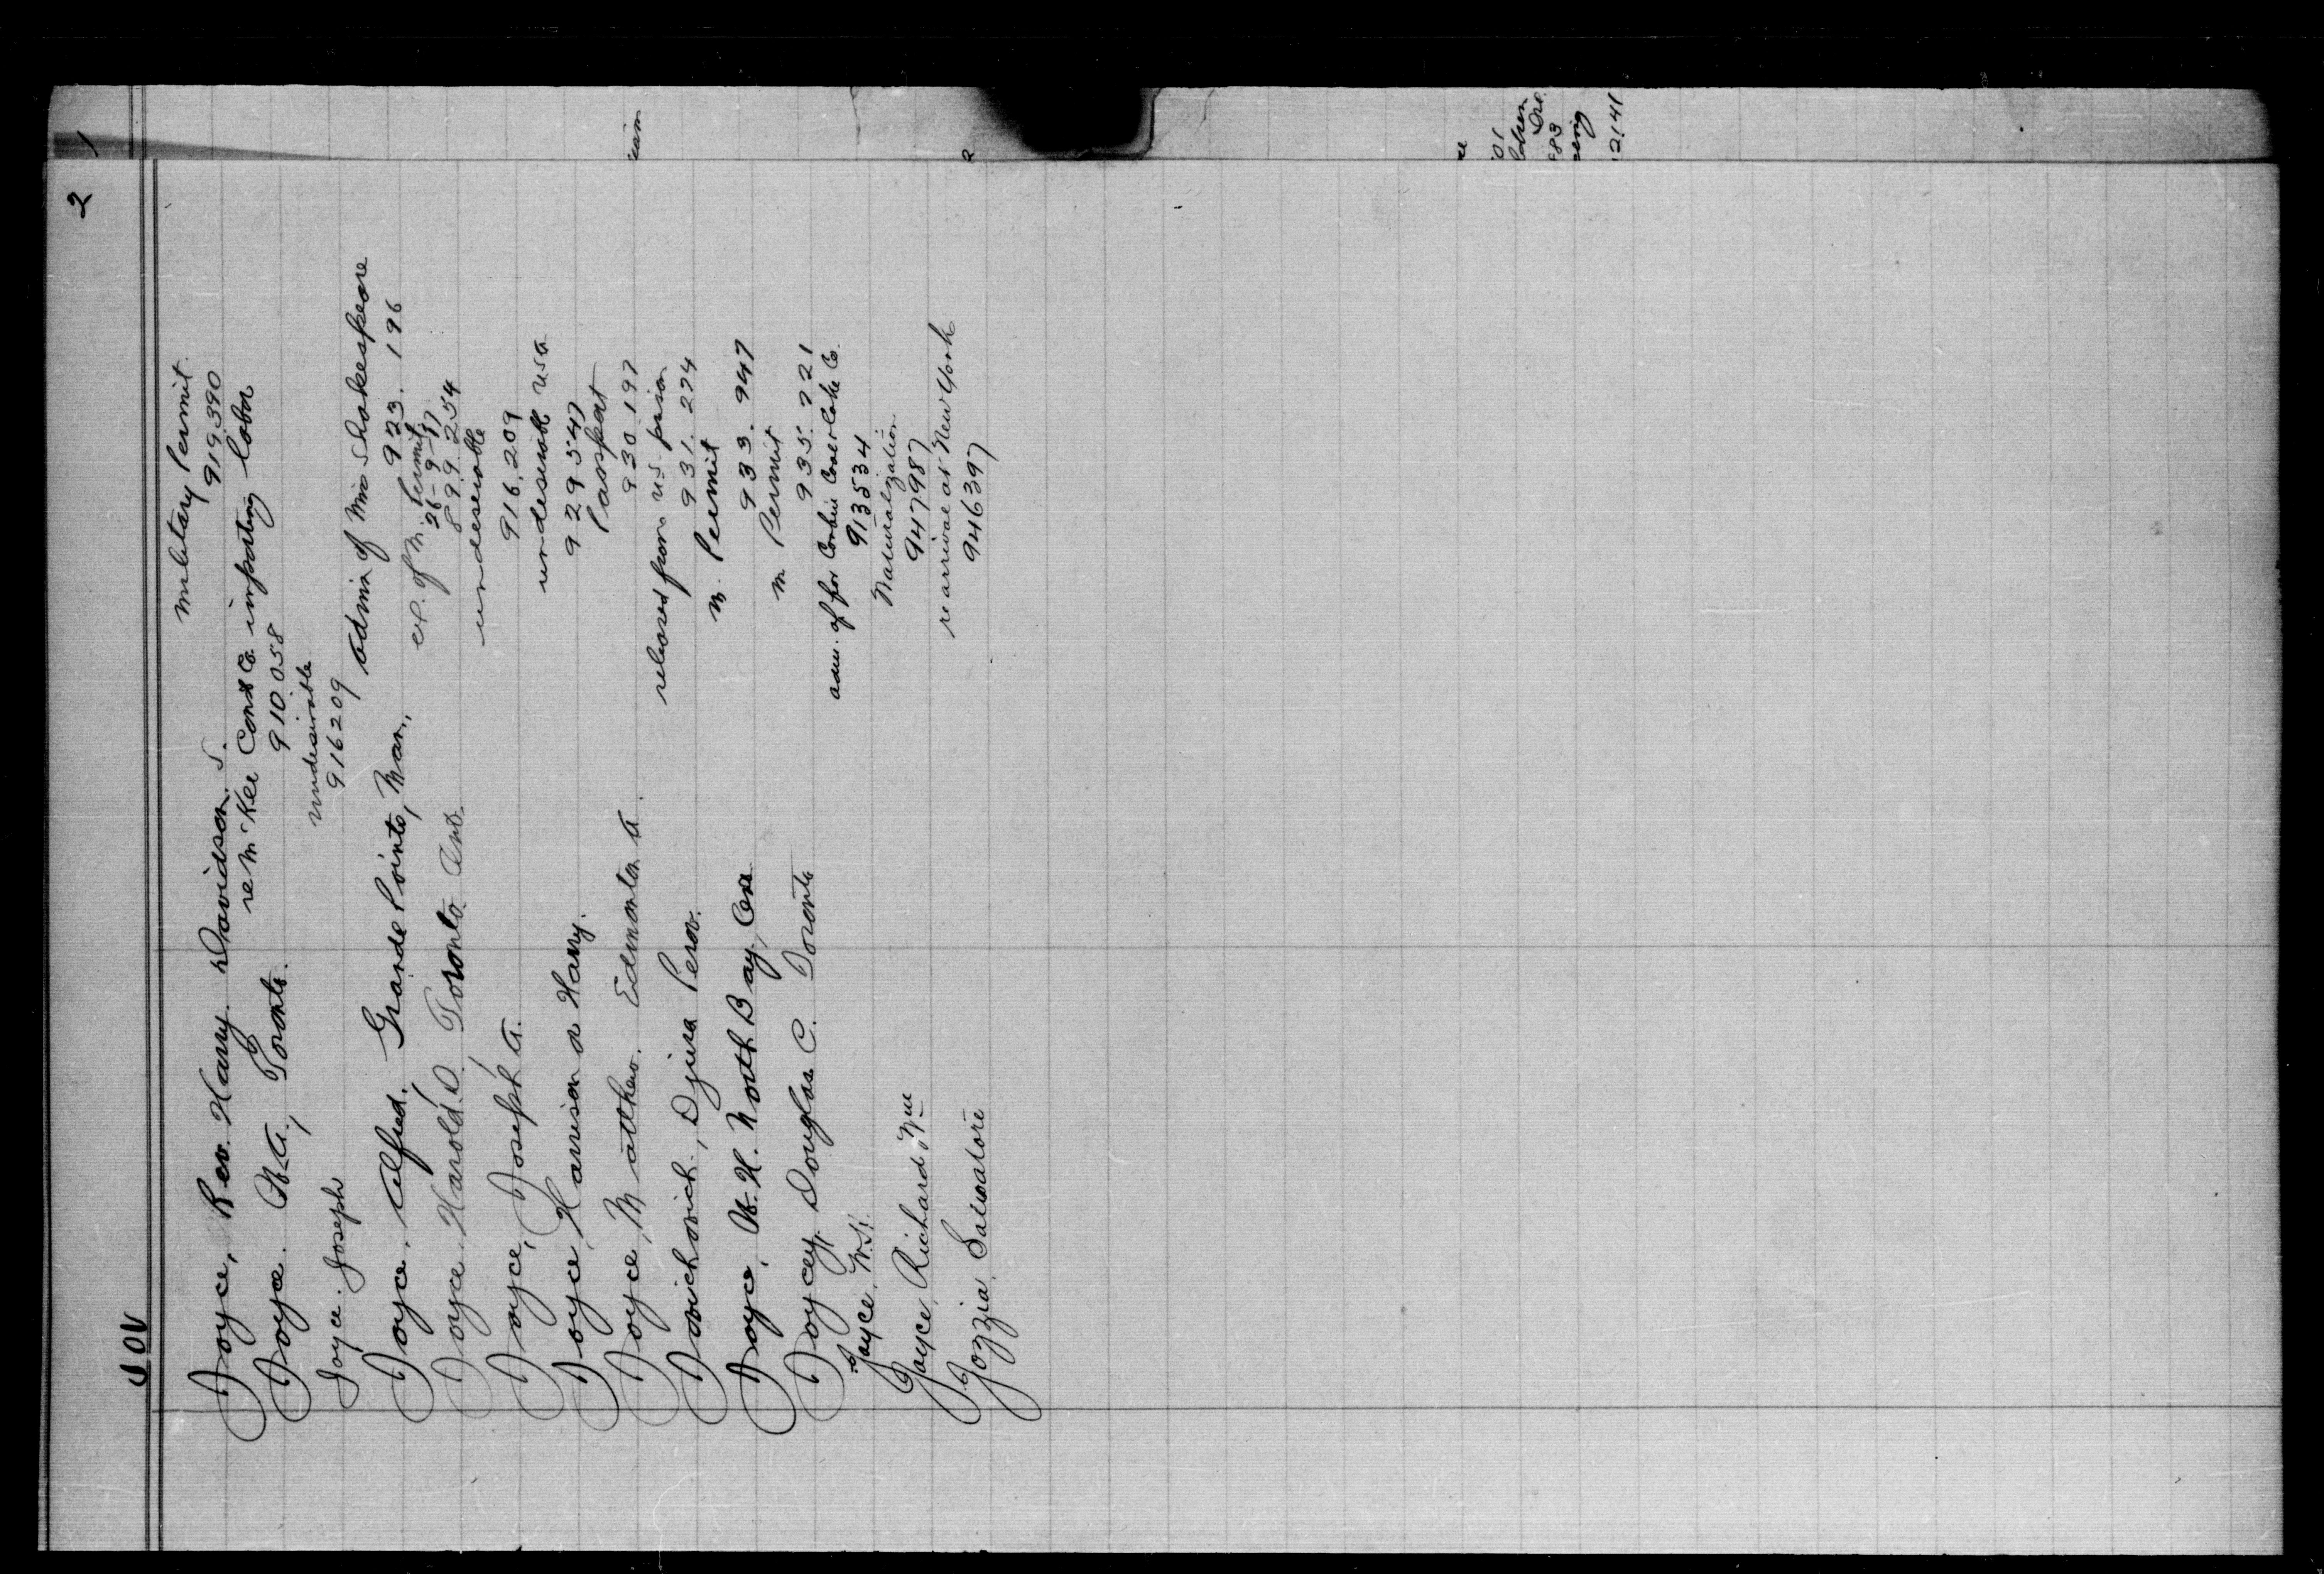 2
JOY
Military Permit
Joyce, Rev. Harry Davidson S. 919390
re McKee Const Co. importing labor
Joyce. W.A., Toronto. 910058
undesirable
Joyce. Joseph 916209
admin of Mrs Shakespeare
Joyce, Alfred, Grande Pointe, Man., 923.196
ex. of M. Permit
26-9-17
Joyce Harold, D. Toronto Ont. 899.254
undeserable
Joyce, Joseph A. 916.209
undeserable USA
Joyce, Harrison or Harry. 929547
Passport
Joyce, Mathew. Edmonton A. 930.197
released from U.S. prison
Jovichovich, Djura 931.274
M. Permit
Joyce, W.H. North Bay, 933.947
M Permit
Joycey, Douglas C. Toronto 935.721
adm. of for Corbin Coal & Coke Co.
Joyce, W.H. 913534
Naturalization
Joyce, Richard Wm 947987
re arrival at New York
Jozzia, Salvatore 946397
1
2141